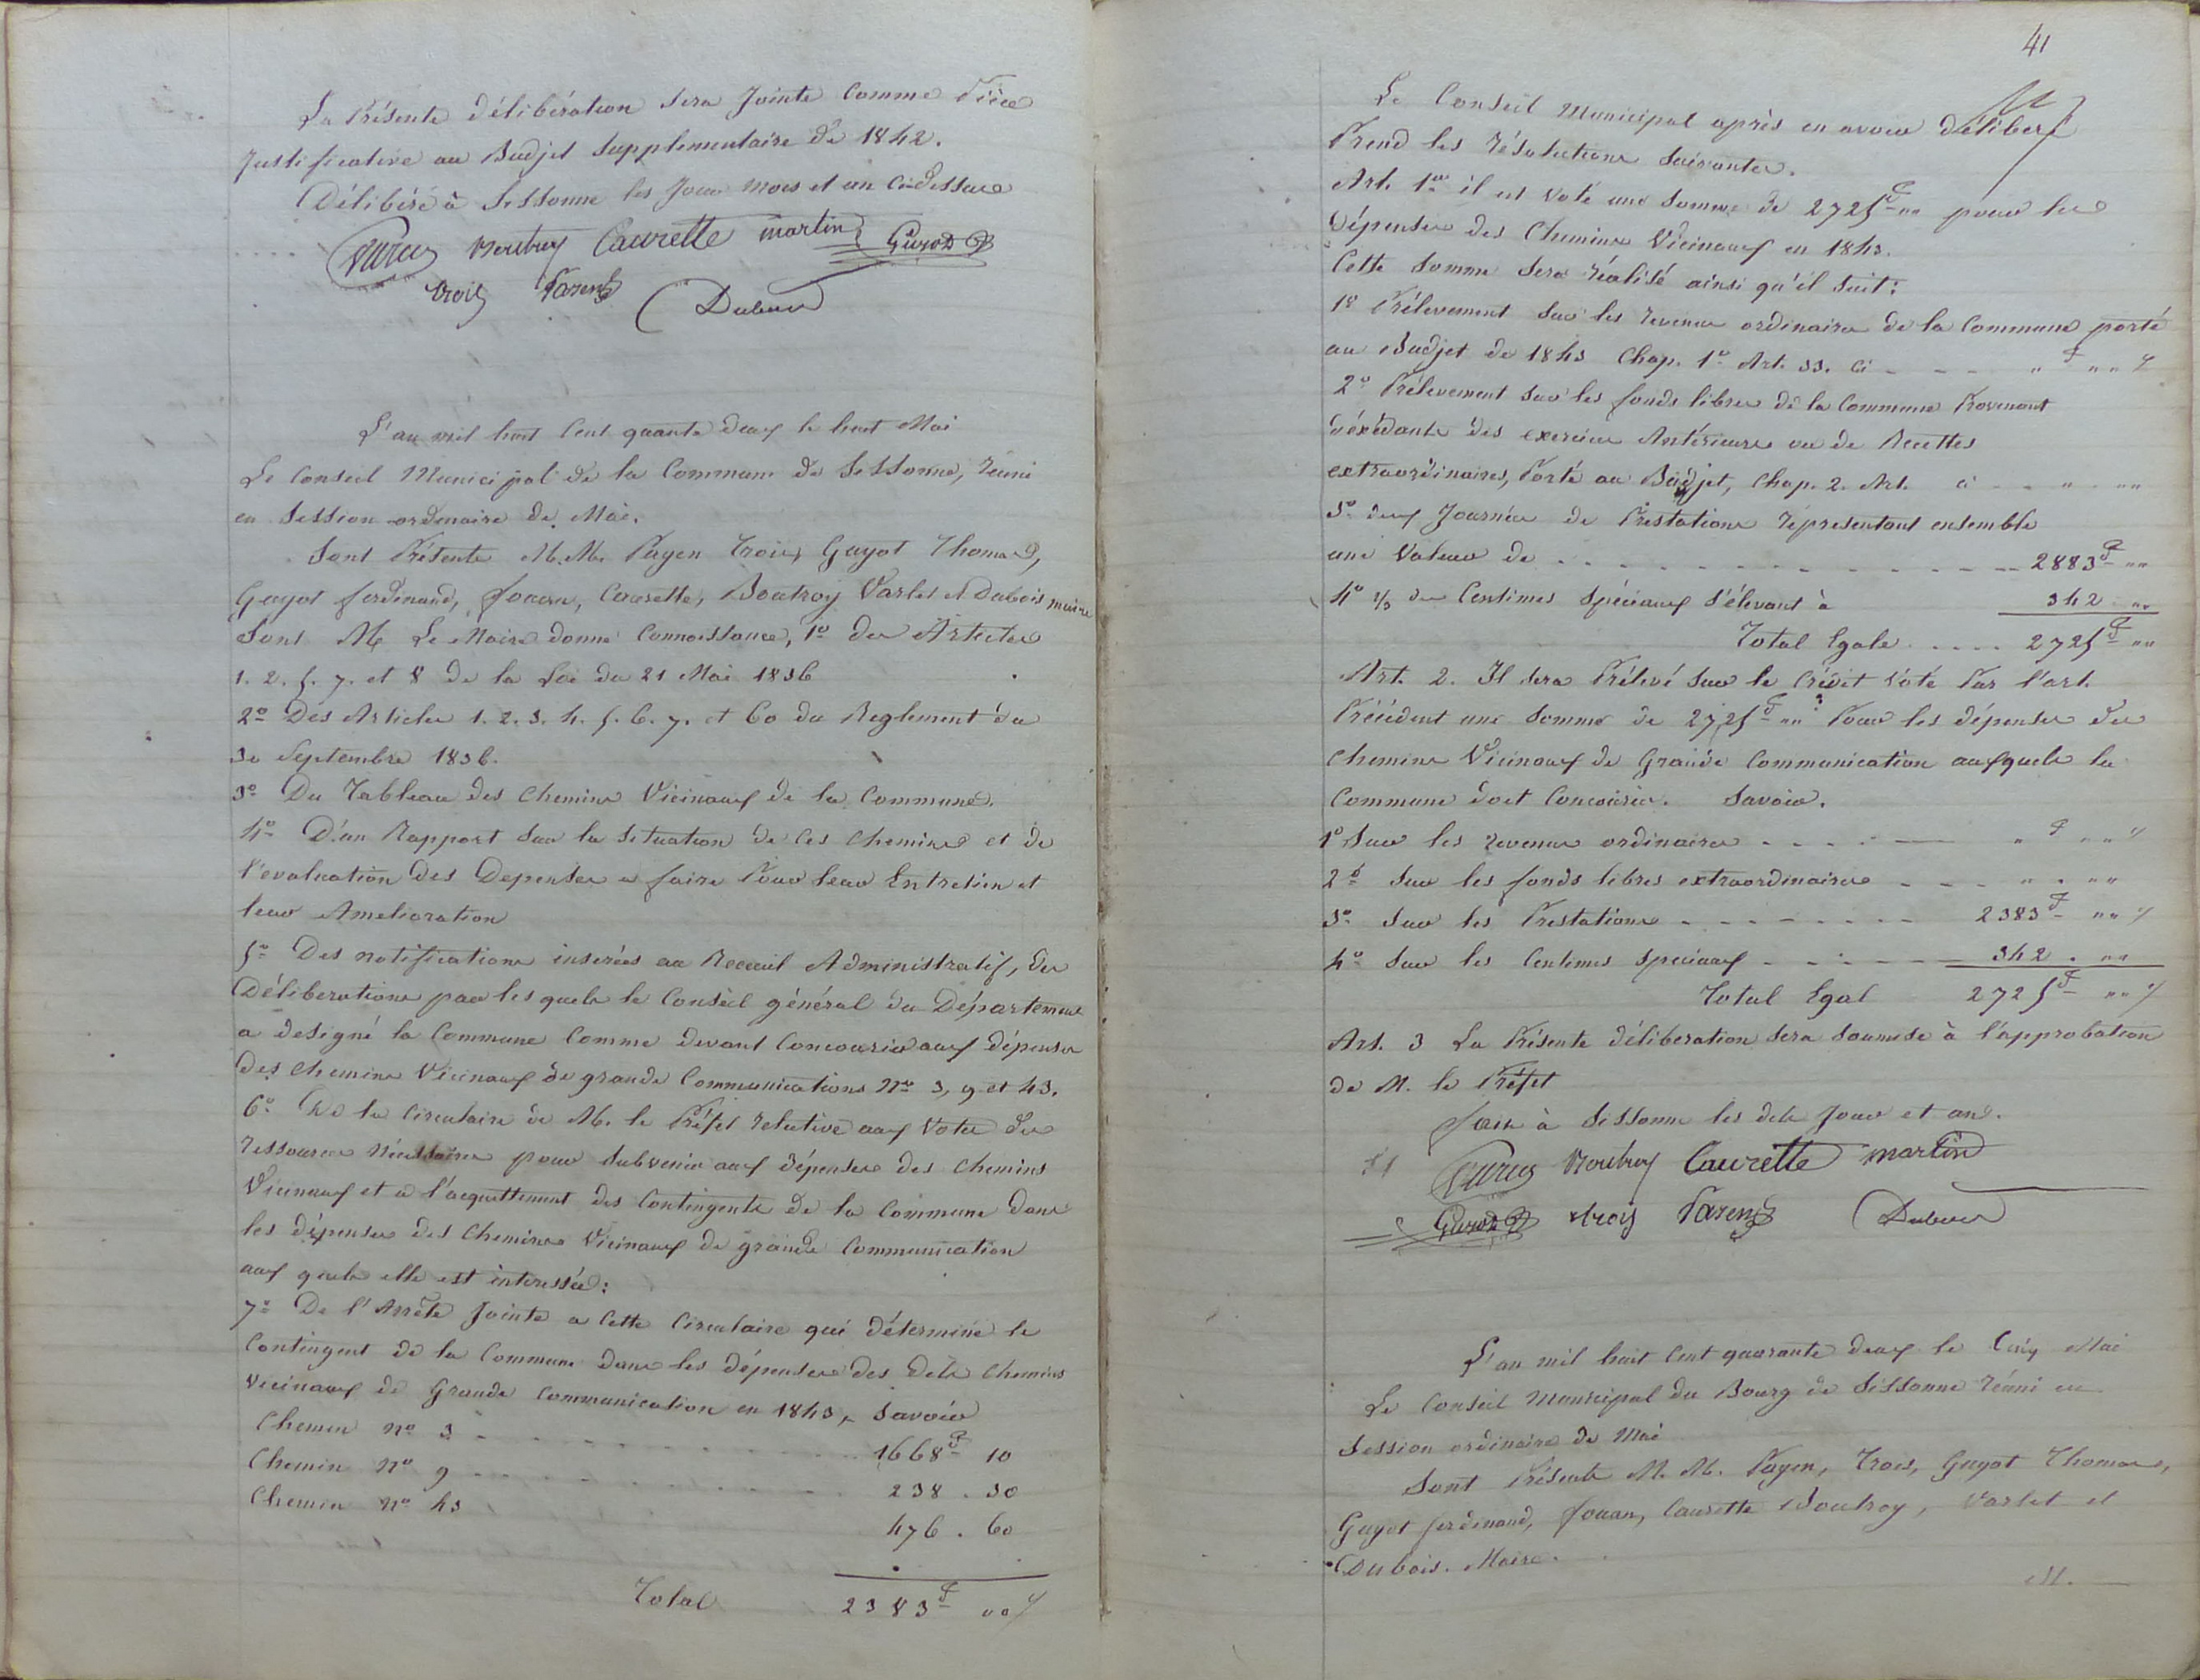 La Présente délibération sera Jointe Comme Pièce
Justificative au Budjet Supplementaire de 1842.
Délibéré à Sissonne les Jour mois et an Cidessus
Boutroy Caurette martin Guyot
trois Payen Dubois
L'an mil huit Cent quante deux le huit Mai
Le Conseil Municipal de la Commune de Sissonne, réuni
en Session ordinaire de Mai.
Sont Présents M.M. Payen Trois, Guyot Thomas,
Guyot ferdinand, fouan, Caurette, Boutroy Varlet et Dubois maire
Sont M. Le Maire donne Connaissance, 1º des Articles
1. 2. 5. 7. et 8 de la Loi du 21 Mai 1836
2º Des Articles 1. 2. 3. 4. 5. 6. 7. et 60 du Reglement du
30 Septembre 1836.
3º Du Tableau des Chemins Vicinaux de la Commune.
4º D'un Rapport sur la Situation de Ces Chemins et de
l'evaluation des Depenses a faire Pour leur Entretien et
leur Amelioration
5º Des notifications inserées au Recueil Administratif, des
Déliberations par les quels le Conseil général du Département
a designé la Commune Comme devant Concourir aux dépenses
des Chemins Vicinaux de grande Communications Nº 3, 9 et 43.
6º De la Circulaire de M. le Préfet relative aux Votes des
ressources nécessaires pour subvenir aux dépenses des Chemins
Vicinaux et a l'acquittement des Contingents de la Commune dans
les dépenses des Chemins Vicinaux de grande Communication
aux quels elle est interessée:
7º De l'Arrêté Jointe a Cette Circulaire qui détermine le
Contingent de la Commune dans les dépenses des dits Chemins
Vicinaux de Grande Communication en 1843, Savoir
Chemin Nº 3 1668 f 10
Chemin Nº 9 238 . 30
Chemin Nº 43 476 . 60
Total 2383 f ""
41
Le Conseil Municipal après en avoir délibéré
Prend les résolutions Suivantes.
Art. 1er il est voté une somme de 2725 f "" pour les
dépenses des Chemins Vicinaux en 1843.
Cette somme sera réalisé ainsi qu'il suit:
1º Prélevement sur les revenus ordinaires de la Commune porté
au Budjet de 1843 Chap. 1º Art. 33. Ci " f ""
2º Prélevement sur les fonds libres de la Commune Provenant
d'éxédants des exercices Antérieurs ou de Recettes
extraordinaires, Porté au Budjet, Chap. 2. Art. Ci " ""
3º deux Journées de Prestations représentant ensemble
une Valeur de 2883 f ""
4º 2/3 des Centimes Spéciaux s'élevant à 342 ""
Total Egale 2725 f ""
Art. 2. Il sera Prélevé sur le Crédit voté Par l'art.
Précédent une Somme de 2725 f "" Pour les dépenses des
Chemins Vicinaux de Grande Communication auxquels la
Commune doit Concourir. Savoir.
1º Sur les revenus ordinaires " f ""
2º Sur les fonds libres extraordinaires " . ""
3º Sur les Prestations 2383 f ""
4º Sur les Centimes Spéciaux 342 . ""
Total Egal 2725 f ""
Art. 3 La Présente délibération sera soumise à l'approbation
de M. le Préfet
fait à Sissonne les dits Jour et an.
Boutroy Caurette martin
Guyot trois Payen Dubois
L'an mil huit Cent quarante deux le Cinq Mai
Le Conseil Municipal du Bourg de Sissonne réuni en
Session ordinaire de Mai
Sont Présents M. M. Payen, Trois, Guyot Thomas,
Guyot ferdinand, fouan, Caurette Boutroy, Varlet et
Dubois. Maire.
M.